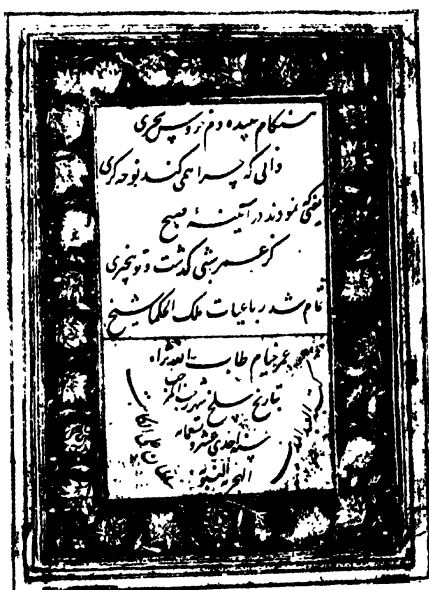 هنگام سپیده دم خروس سحری
دانی که چرا همی کند نوحه گری
یعنی که نمودند در آیینهٔ صبح
کز عمر شبی گذشت و تو بیخبری
تمام شد رباعیات ملک الحکما شیخ
عمر خیام طاب الله ثراه
بتاریخ سلخ شهر رجب المرجب
سنه احدی عشر و تسعمائه
الهجریة النبویه